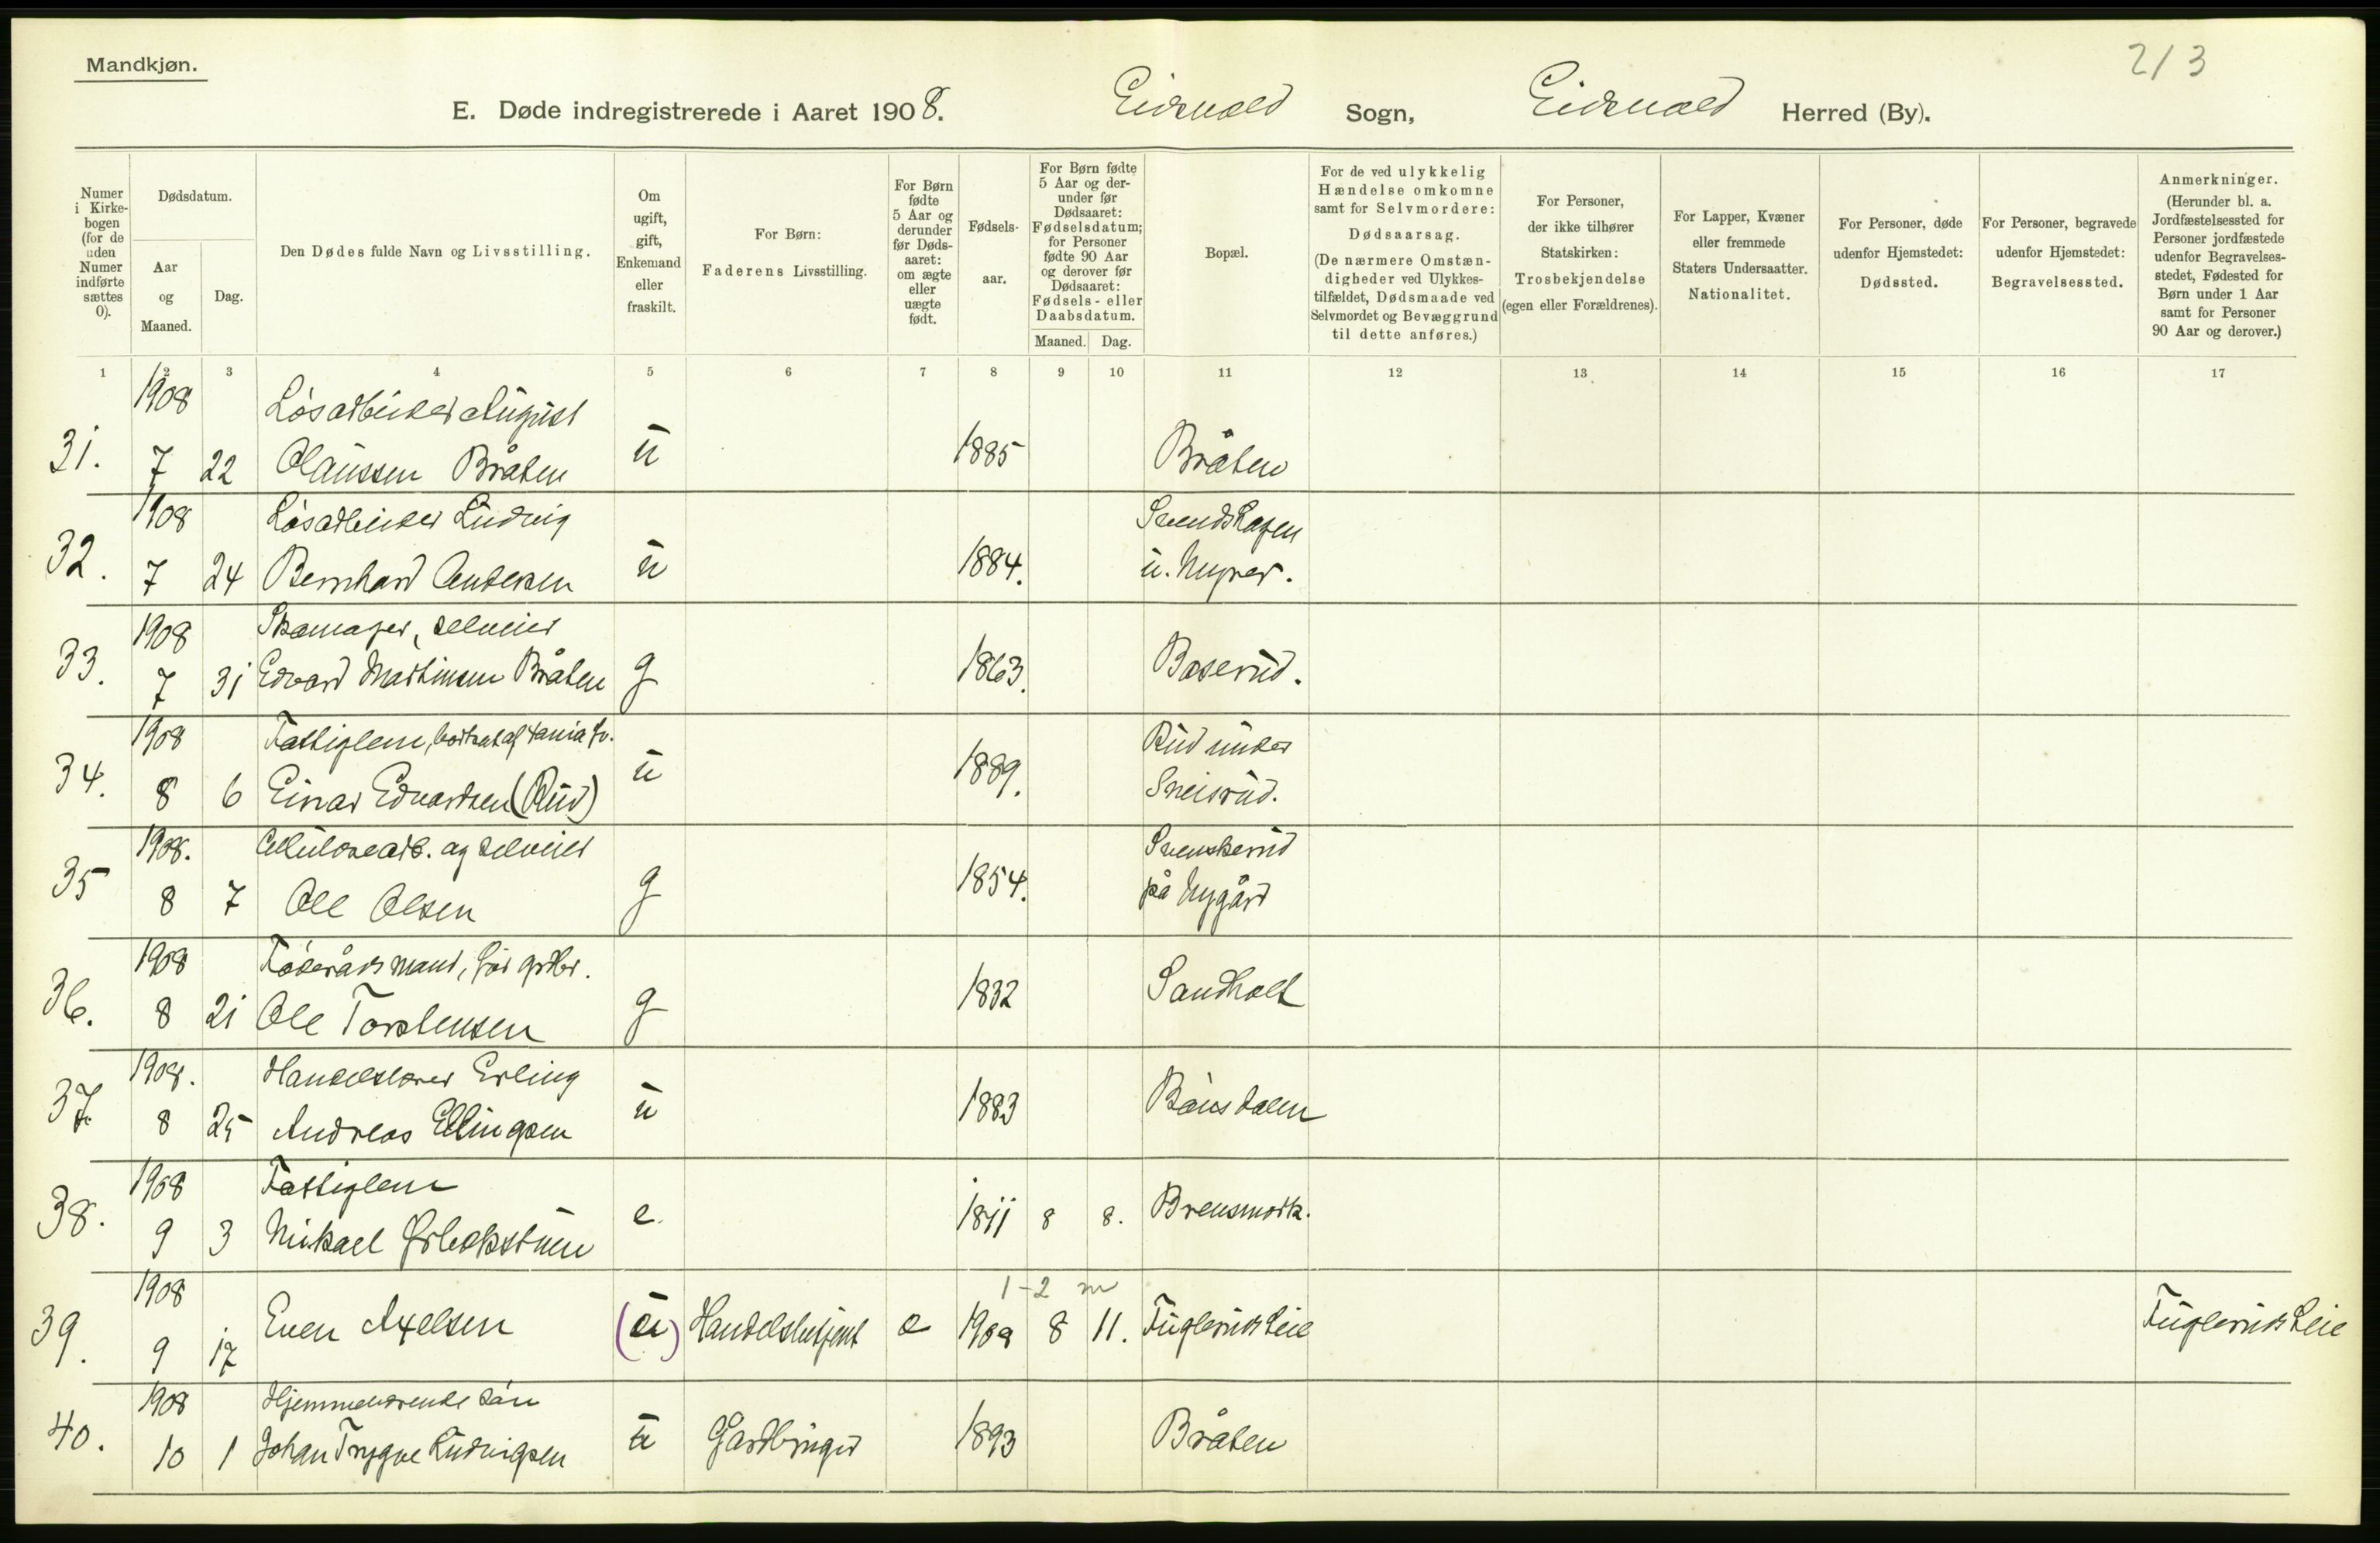 Mandkjøn.
213
E. Døde indregistrerede i Aaret 1908. Eidsvold Sogn, Eidsvold Herred (By).
Numer i Kirkebogen (for de uden Numer indførte sættes 0).
Dødsdatum.
Aar og Maaned.
Dag.
Den Dødes fulde Navn og Livsstilling.
Om ugift, gift, Enkemand eller fraskilt.
For Børn: Faderens Livsstilling.
For Børn fødte 5 Aar og derunder før Dødsaaret: om ægte eller uægte født.
Fødselsaar.
For Børn fødte 5 Aar og derunder før Dødsaaret: Fødselsdatum; for Personer fødte 90 Aar og derover før Dødsaaret: Fødsels- eller Daabsdatum.
Maaned. Dag.
Bopæl.
For de ved ulykkelig Hændelse omkomne samt for Selvmordere: Dødsaarsag. (De nærmere Omstændigheder ved Ulykkestilfældet, Dødsmaade ved Selvmordet og Bevæggrund til dette anføres.)
For Personer, der ikke tilhører Statskirken: Trosbekjendelse (egen eller Forældrenes).
For Lapper, Kvæner eller fremmede Staters Undersaatter. Nationalitet.
For Personer, døde udenfor Hjemstedet: Dødssted.
For Personer, begravede udenfor Hjemstedet: Begravelsessted.
Anmerkninger. (Herunder bl. a. Jordfæstelsessted for Personer jordfæstede udenfor Begravelsesstedet, Fødested for Børn under 1 Aar samt for Personer 90 Aar og derover.)
1 2 3 4 5 6 7 8 9 10 11 12 13 14 15 16 17
1908 Løsarbeider August
31. 7 22 Olaussen Bråten u 1885 Bråten
1908 Løsarbeider Ludvig Svendshagen
32. 7 24 Bernhard Andersen u 1884. u. Myrer.
1908 Skomager, selveier
33. 7 31 Edvard Martinsen Bråten g 1863. Boserud.
1908 Fattiglem, Rud under
34. 8 6 Einar Edvardsen (Rud) u 1889. Sneisrud.
1908. Cellulosearb. og selveier Svenskerud
35 8 7 Ole Olsen g 1854. på Nygård
1908 Føderådsmand, før grdbr.
36. 8 21 Ole Torstensen g 1832 Sandholt
1908. Handelslærer Erling
37. 8 25 Andreas Ellingsen u 1883 Bønsdalen
1908 Fattiglem
38. 9 3 Mikael Ørbekstuen e. 1811 8 8. Brensmork.
1908 1-2 m
39. 9 17 Even Axelsen (u) Handelsbetjent e 1908 8 11. Fuglerudsleie Fuglerudsleie
1908 Hjemmeværende søn
40. 10 1 Johan Trygve Ludvigsen u Gardbruger 1893 Bråten